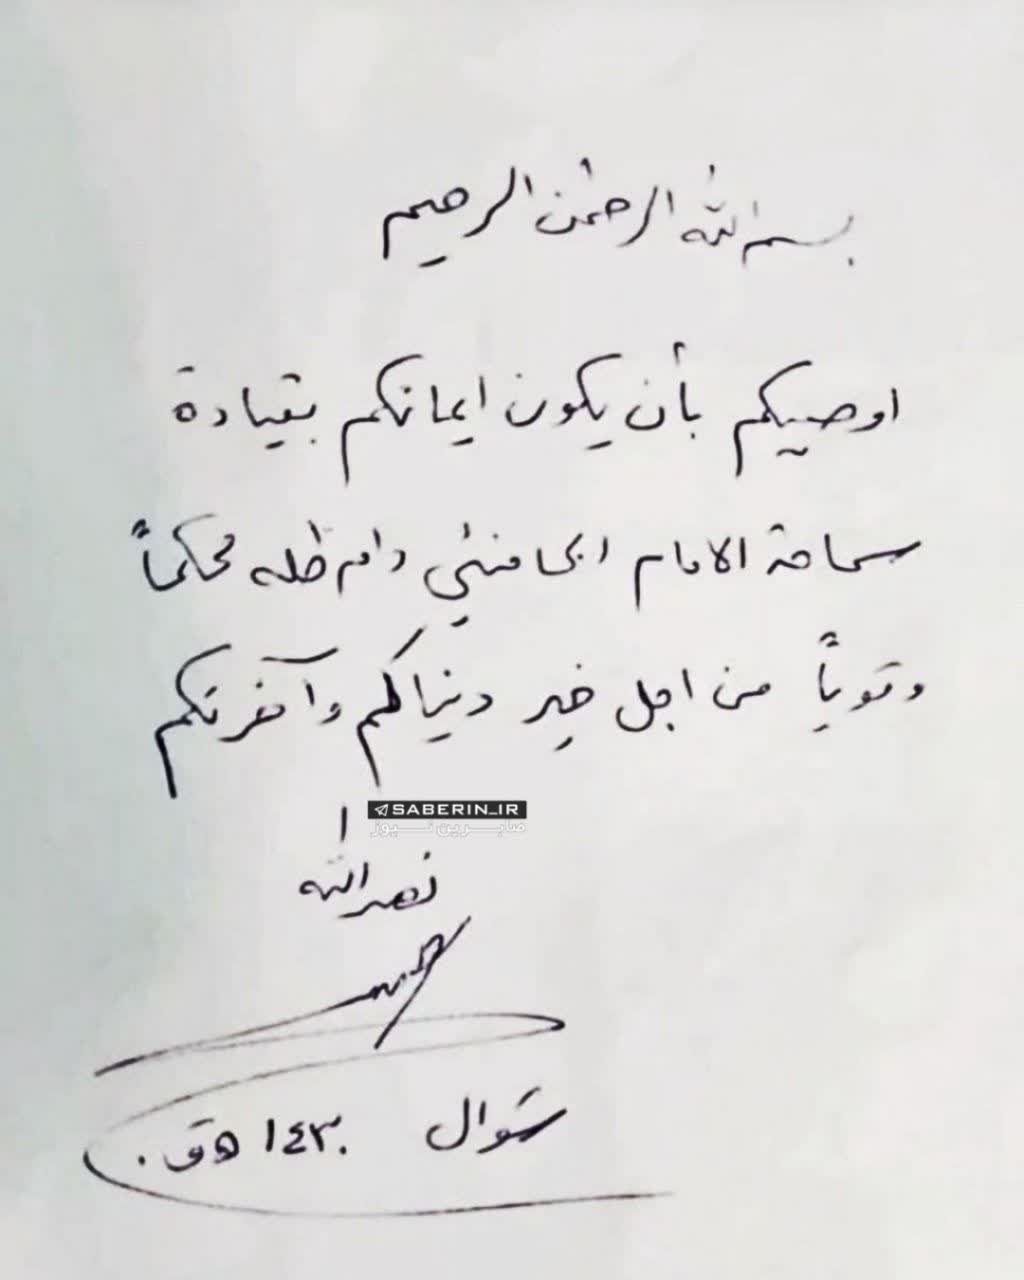 بسم الله الرحمن الرحيم
اوصيكم بأن يكون ايمانكم بقيادة
سماحة الامام الخامنئي دام ظله محكماً
وقوياً من اجل خير دنياكم وآخرتكم
SABERIN_IR
صابرین نیوز
نصر الله
شوال ١٤٣٠ هـ ق.